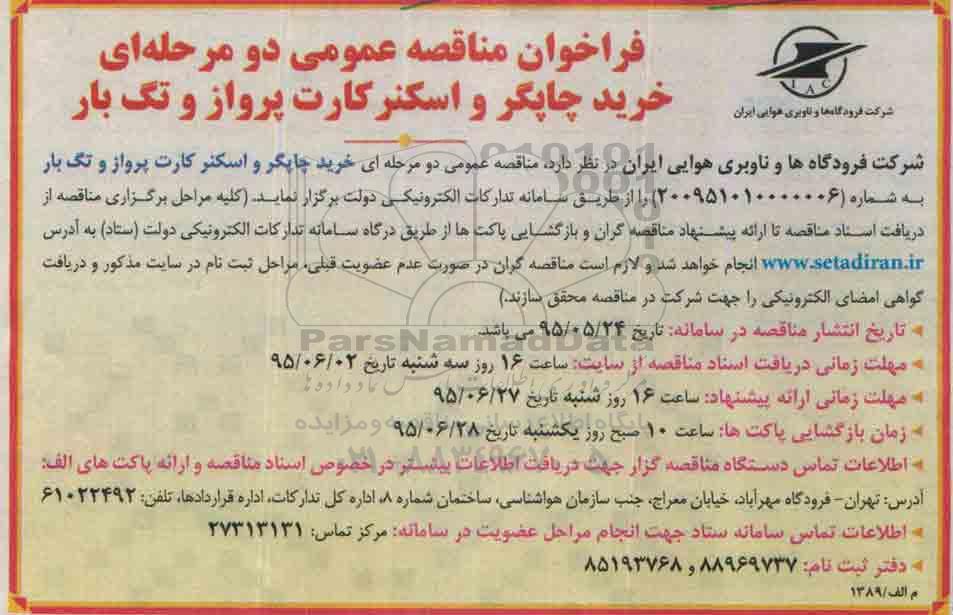 فراخوان مناقصه عمومی دو مرحله‌ای
خرید چاپگر و اسکنر کارت پرواز و تگ بار
IAC
شرکت فرودگاه‌ها و ناوبری هوایی ایران
شرکت فرودگاه ها و ناوبری هوایی ایران در نظر دارد، مناقصه عمومی دو مرحله ای خرید چاپگر و اسکنر کارت پرواز و تگ بار
به شماره (۲۰۰۹۵۱۰۱۰۰۰۰۰۰۶) را از طریق سامانه تدارکات الکترونیکی دولت برگزار نماید. (کلیه مراحل برگزاری مناقصه از
دریافت اسناد مناقصه تا ارائه پیشنهاد مناقصه گران و بازگشایی پاکت ها از طریق درگاه سامانه تدارکات الکترونیکی دولت (ستاد) به آدرس
www.setadiran.ir انجام خواهد شد و لازم است مناقصه گران در صورت عدم عضویت قبلی، مراحل ثبت نام در سایت مذکور و دریافت
گواهی امضای الکترونیکی را جهت شرکت در مناقصه محقق سازند.)
تاریخ انتشار مناقصه در سامانه: تاریخ ۹۵/۰۵/۲۴ می باشد.
مهلت زمانی دریافت اسناد مناقصه از سایت: ساعت ۱۶ روز سه شنبه تاریخ ۹۵/۰۶/۰۲
مهلت زمانی ارائه پیشنهاد: ساعت ۱۶ روز شنبه تاریخ ۹۵/۰۶/۲۷
زمان بازگشایی پاکت ها: ساعت ۱۰ صبح روز یکشنبه تاریخ ۹۵/۰۶/۲۸
اطلاعات تماس دستگاه مناقصه گزار جهت دریافت اطلاعات بیشتر در خصوص اسناد مناقصه و ارائه پاکت های الف:
آدرس: تهران- فرودگاه مهرآباد، خیابان معراج، جنب سازمان هواشناسی، ساختمان شماره ۸، اداره کل تدارکات، اداره قراردادها، تلفن: ۶۱۰۲۲۴۹۲
اطلاعات تماس سامانه ستاد جهت انجام مراحل عضویت در سامانه: مرکز تماس: ۲۷۳۱۳۱۳۱
دفتر ثبت نام: ۸۸۹۶۹۷۳۷ و ۸۵۱۹۳۷۶۸
م الف/۱۳۸۹
ParsNamadData
پایگاه اطلاع رسانی مناقصه و مزایده